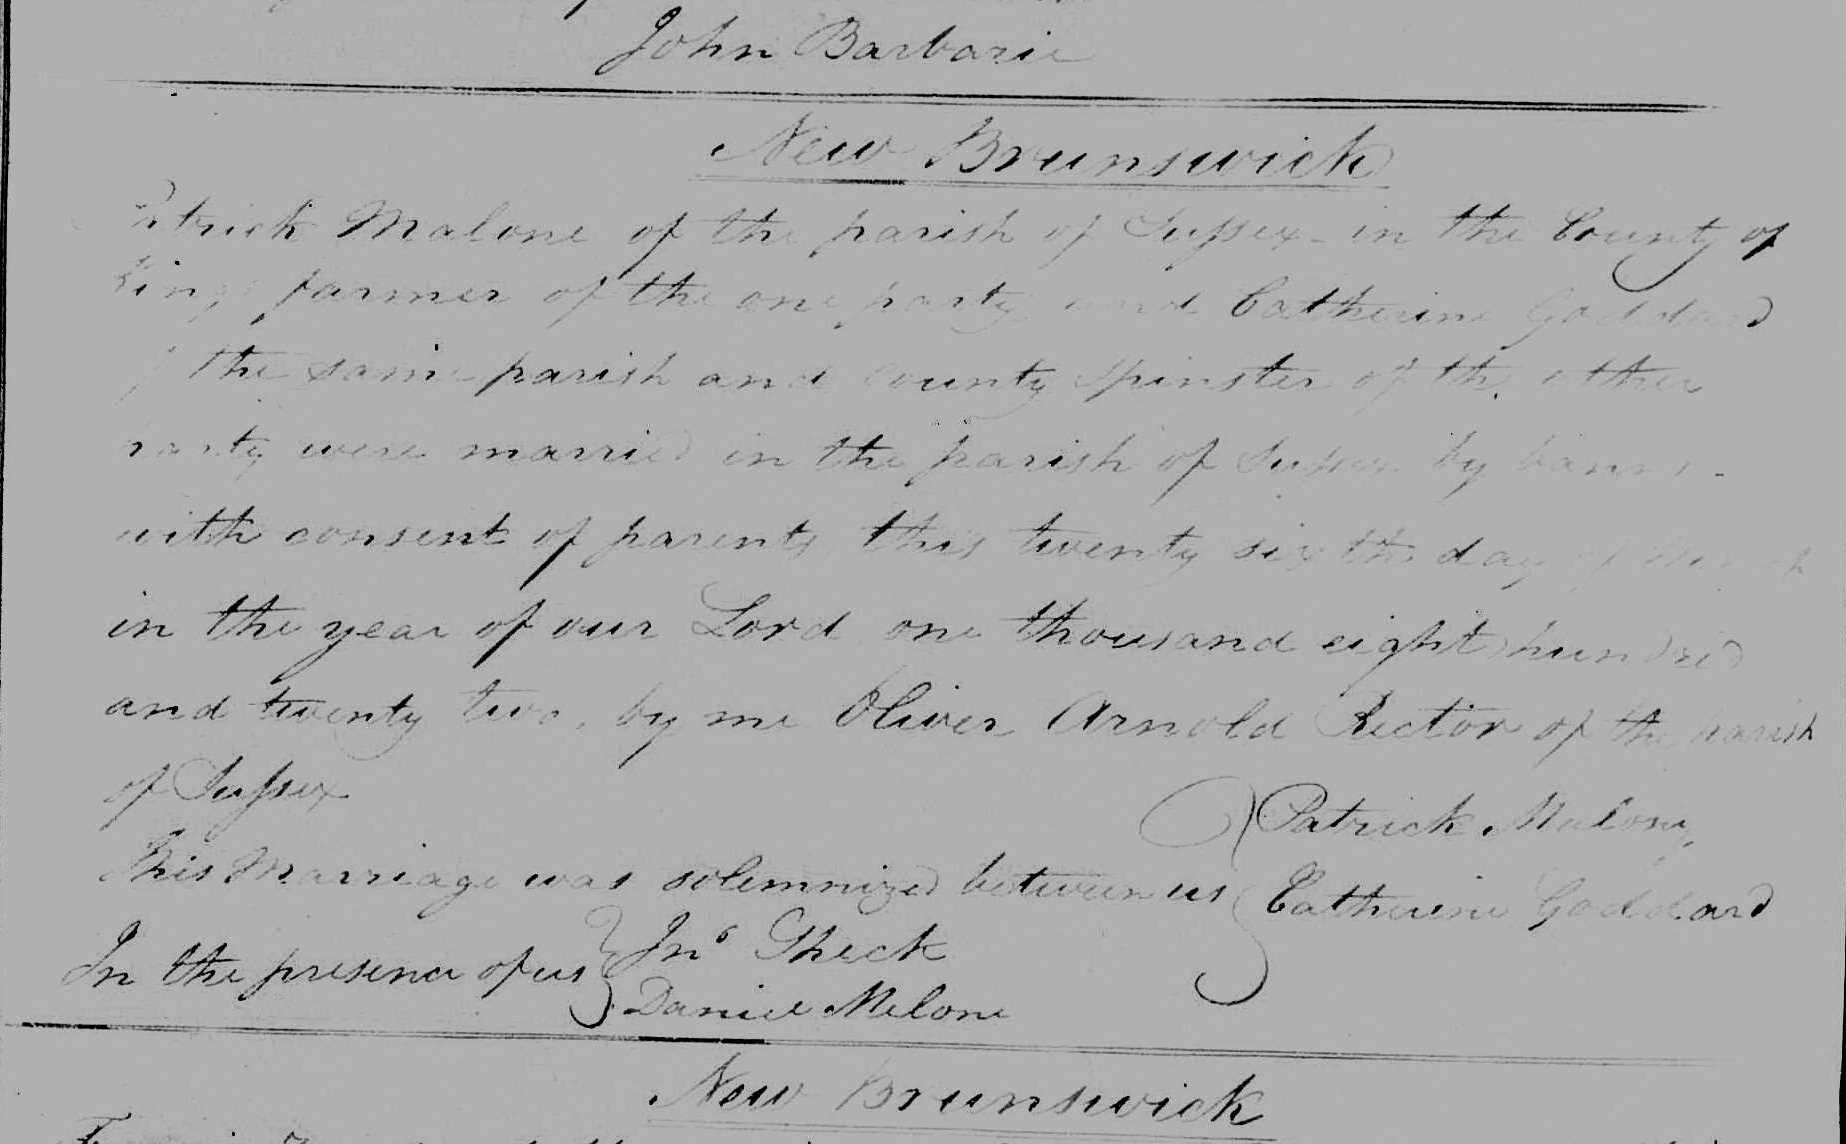 John Barbarie
New Brunswick
Patrick Malone of the parish of Sussex - in the County of
Kings farmer of the one party and Catherine Goddard
of the same parish and county spinster of the other
party were married in the parish of Sussex by banns -
with consent of parents this twenty sixth day of March
in the year of our Lord one thousand eight hundred
and twenty two, by me Oliver Arnold Rector of the parish
of Sussex
This Marriage was solemnized between us
Patrick Malone
Catherine Goddard
In the presence of us
Jno Sheck
Daniel Melone
New Brunswick